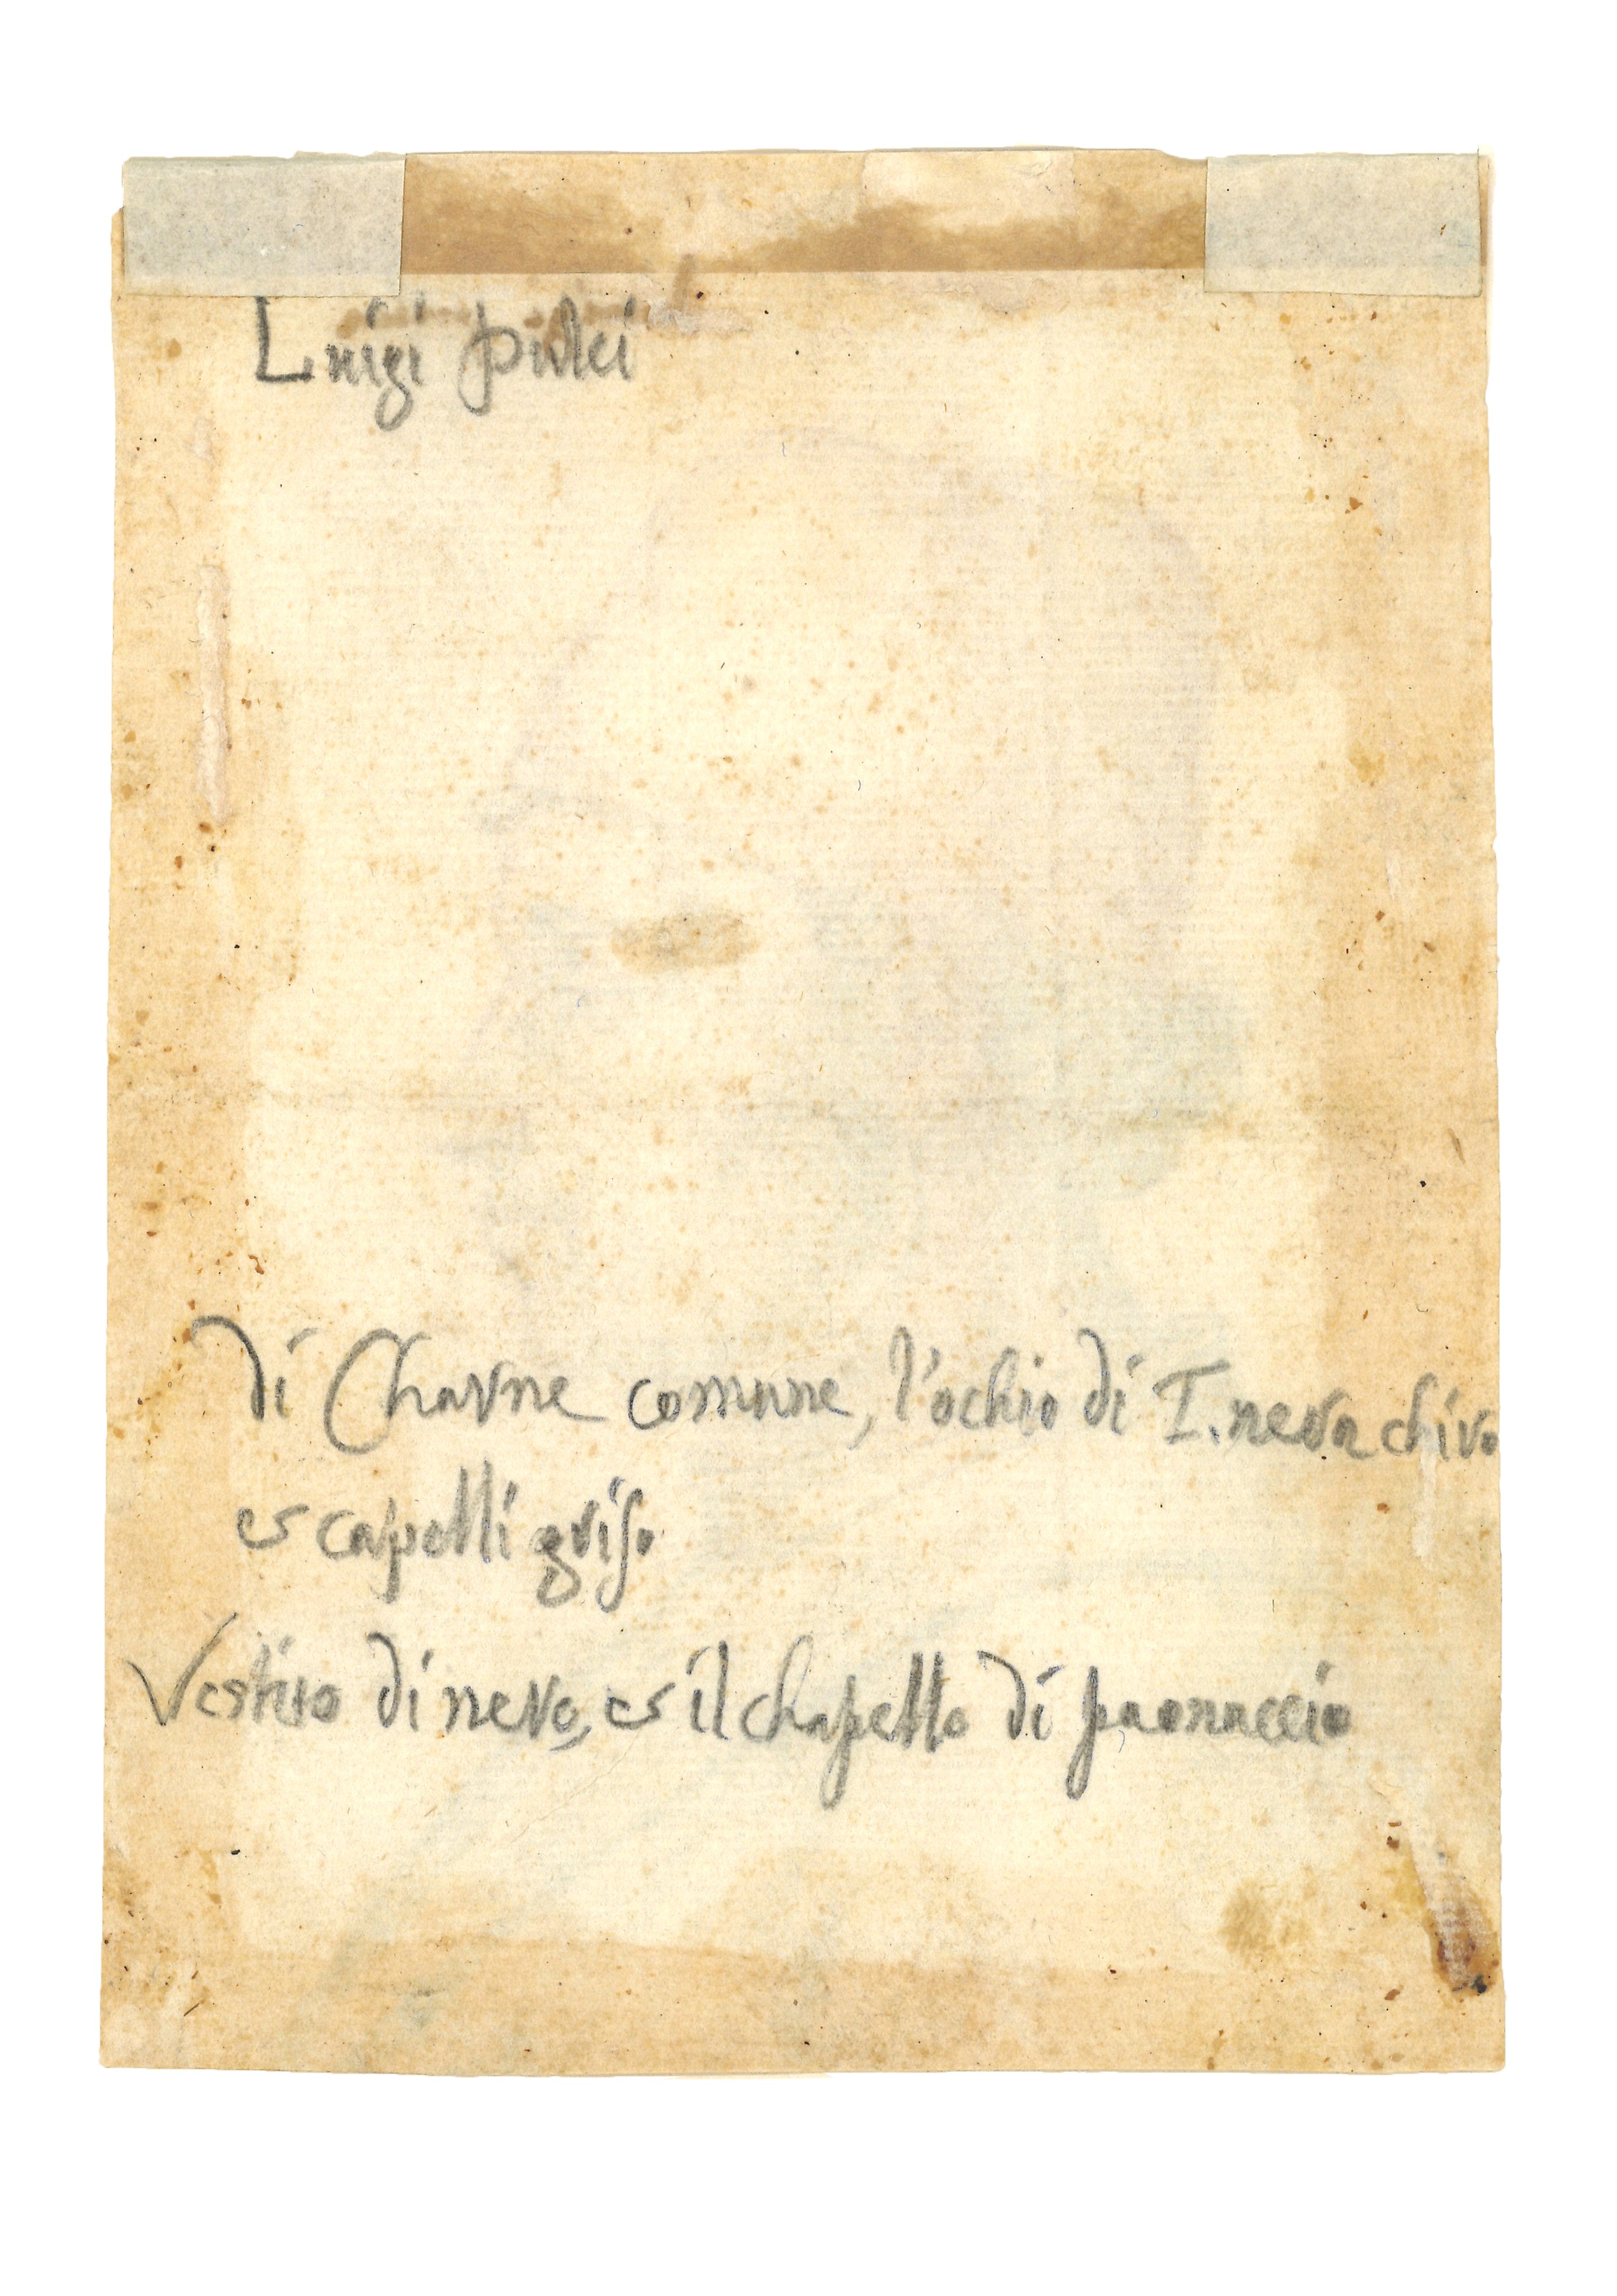 Luigi pulci
di Charne comune, l'ochio di T. nera chiro
et capelli griso
Vestito di nero, et il chapello di paonaccio